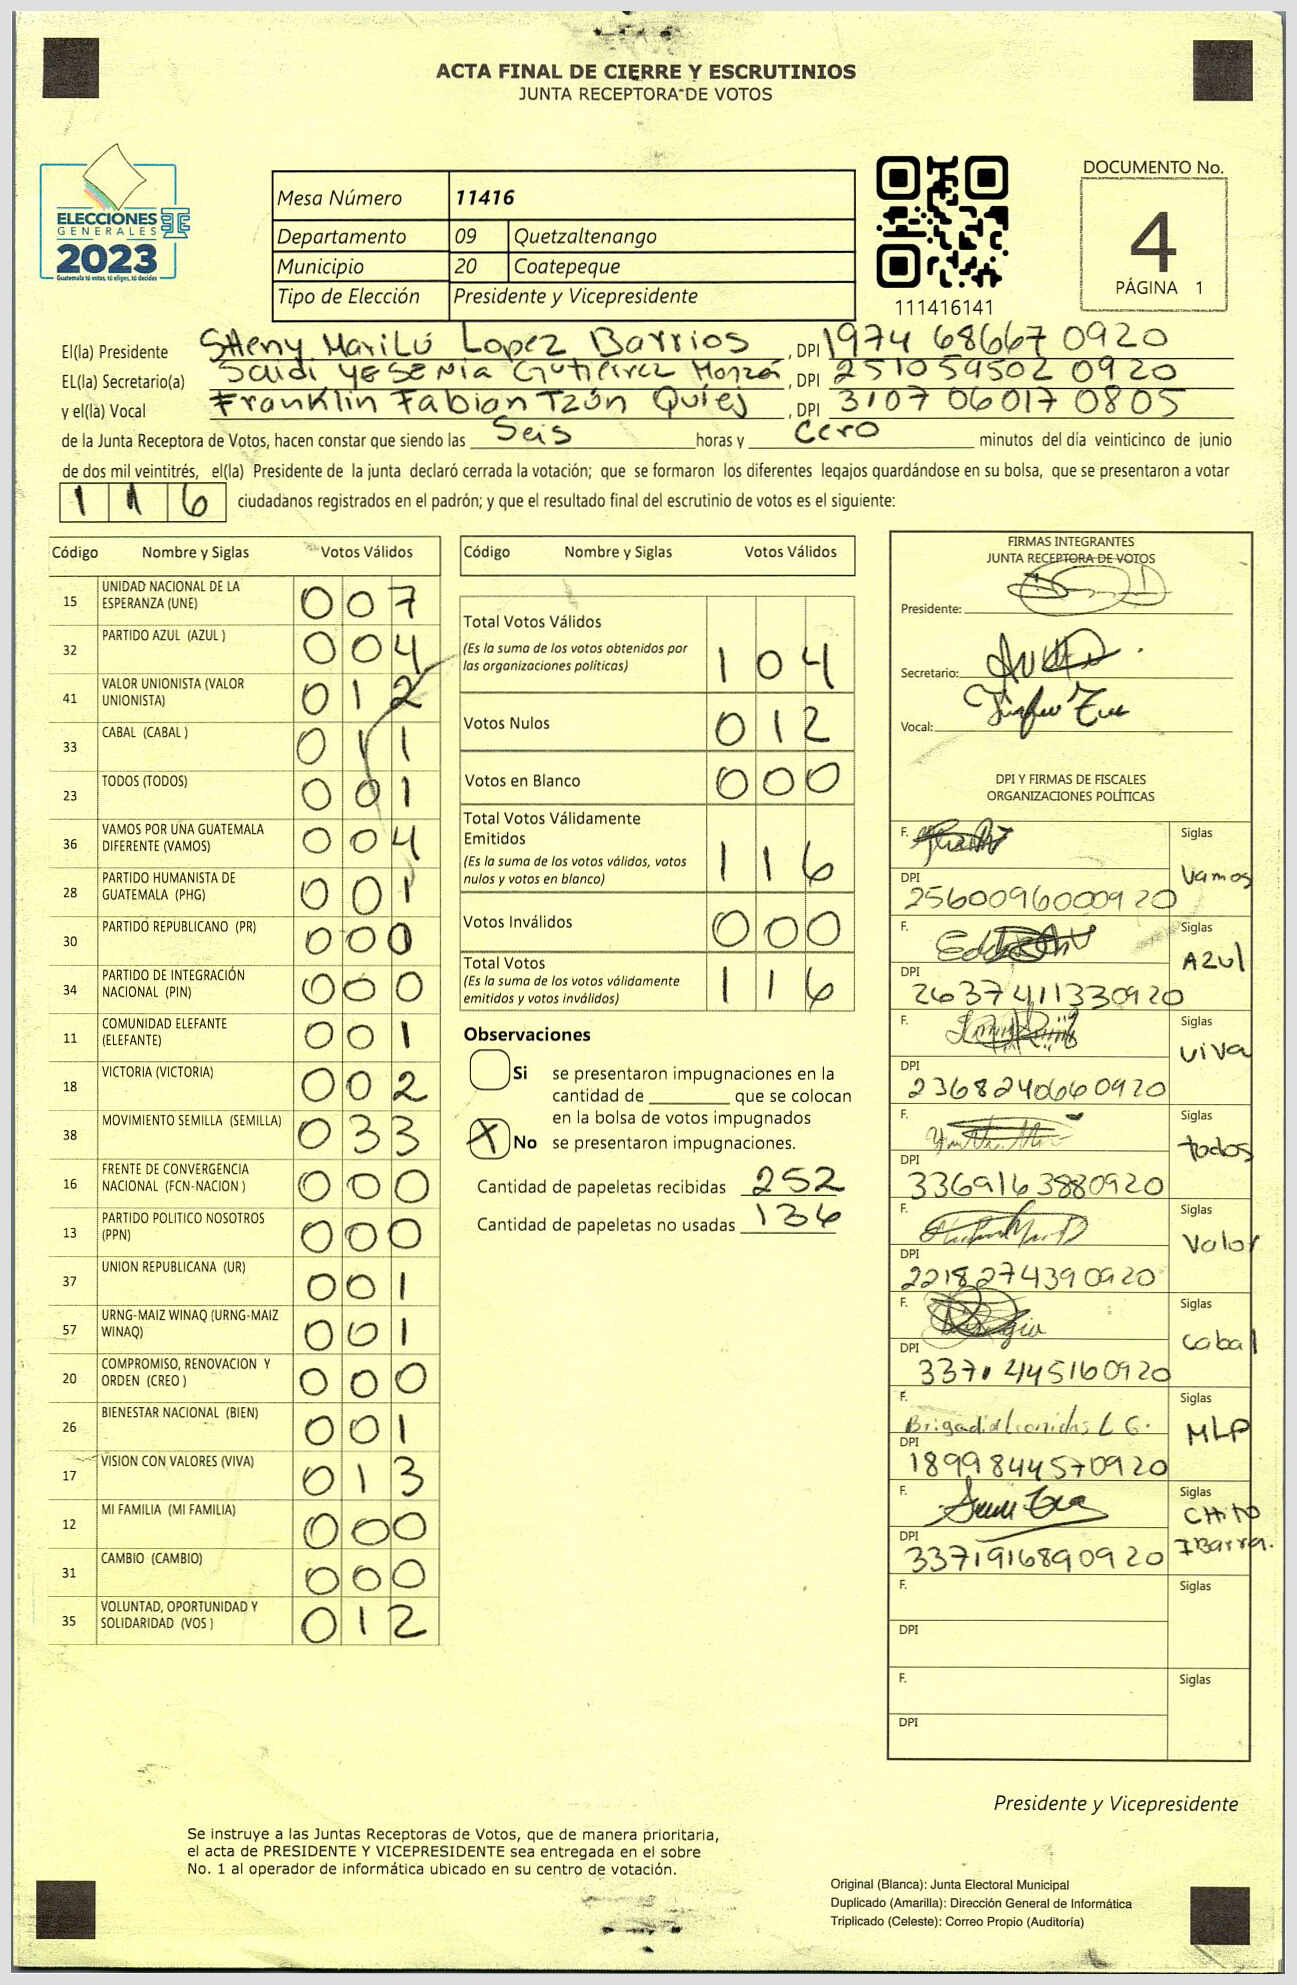 ACTA FINAL DE CIERRE Y ESCRUTINIOS
JUNTA RECEPTORA DE VOTOS
ELECCIONES
GENERALES
2023
Guatemala tú votas, tú eliges, tú decides
Mesa Número 11416
Departamento 09 Quetzaltenango
Municipio 20 Coatepeque
Tipo de Elección Presidente y Vicepresidente
111416141
DOCUMENTO No.
4
PÁGINA 1
El(la) Presidente Stteny Marilú Lopez Barrios, DPI 1974 68667 0920
EL(la) Secretario(a) Saidi YESENIA Gutiérrez Monzó, DPI 251059502 0920
y el(la) Vocal Franklin Fabian Tzún Quiej, DPI 3107 06017 0805
de la Junta Receptora de Votos, hacen constar que siendo las Seis horas y Cero minutos del día veinticinco de junio
de dos mil veintitrés, el(la) Presidente de la junta declaró cerrada la votación; que se formaron los diferentes legajos guardándose en su bolsa, que se presentaron a votar
116 ciudadanos registrados en el padrón; y que el resultado final del escrutinio de votos es el siguiente:
Código Nombre y Siglas Votos Válidos
15 UNIDAD NACIONAL DE LA ESPERANZA (UNE) 007
32 PARTIDO AZUL (AZUL ) 004
41 VALOR UNIONISTA (VALOR UNIONISTA) 012
33 CABAL (CABAL ) 011
23 TODOS (TODOS) 001
36 VAMOS POR UNA GUATEMALA DIFERENTE (VAMOS) 004
28 PARTIDO HUMANISTA DE GUATEMALA (PHG) 001
30 PARTIDO REPUBLICANO (PR) 000
34 PARTIDO DE INTEGRACIÓN NACIONAL (PIN) 000
11 COMUNIDAD ELEFANTE (ELEFANTE) 001
18 VICTORIA (VICTORIA) 002
38 MOVIMIENTO SEMILLA (SEMILLA) 033
16 FRENTE DE CONVERGENCIA NACIONAL (FCN-NACION ) 000
13 PARTIDO POLITICO NOSOTROS (PPN) 000
37 UNION REPUBLICANA (UR) 001
57 URNG-MAIZ WINAQ (URNG-MAIZ WINAQ) 001
20 COMPROMISO, RENOVACION Y ORDEN (CREO ) 000
26 BIENESTAR NACIONAL (BIEN) 001
17 VISION CON VALORES (VIVA) 013
12 MI FAMILIA (MI FAMILIA) 000
31 CAMBIO (CAMBIO) 000
35 VOLUNTAD, OPORTUNIDAD Y SOLIDARIDAD (VOS ) 012
Código Nombre y Siglas Votos Válidos
Total Votos Válidos
(Es la suma de los votos obtenidos por
las organizaciones políticas) 104
Votos Nulos 012
Votos en Blanco 000
Total Votos Válidamente
Emitidos
(Es la suma de los votos válidos, votos
nulos y votos en blanco) 116
Votos Inválidos 000
Total Votos
(Es la suma de los votos válidamente
emitidos y votos inválidos) 116
Observaciones
Si se presentaron impugnaciones en la
cantidad de ________ que se colocan
en la bolsa de votos impugnados
X No se presentaron impugnaciones.
Cantidad de papeletas recibidas 252
Cantidad de papeletas no usadas 136
FIRMAS INTEGRANTES
JUNTA RECEPTORA DE VOTOS
Presidente:
Secretario:
Vocal:
DPI Y FIRMAS DE FISCALES
ORGANIZACIONES POLÍTICAS
F. Siglas Vamos
DPI 2560096000920
F. Siglas Azul
DPI 2637411330920
F. Siglas viva
DPI 2368240660920
F. Siglas todos
DPI 3369163880920
F. Siglas Valor
DPI 2218274390920
F. Siglas cabal
DPI 3371445160920
F. Siglas MLP
DPI 1899844570920
F. Siglas CHito Ibarra.
DPI 3371916890920
F. Siglas
DPI
F. Siglas
DPI
Presidente y Vicepresidente
Se instruye a las Juntas Receptoras de Votos, que de manera prioritaria,
el acta de PRESIDENTE Y VICEPRESIDENTE sea entregada en el sobre
No. 1 al operador de informática ubicado en su centro de votación.
Original (Blanca): Junta Electoral Municipal
Duplicado (Amarilla): Dirección General de Informática
Triplicado (Celeste): Correo Propio (Auditoría)